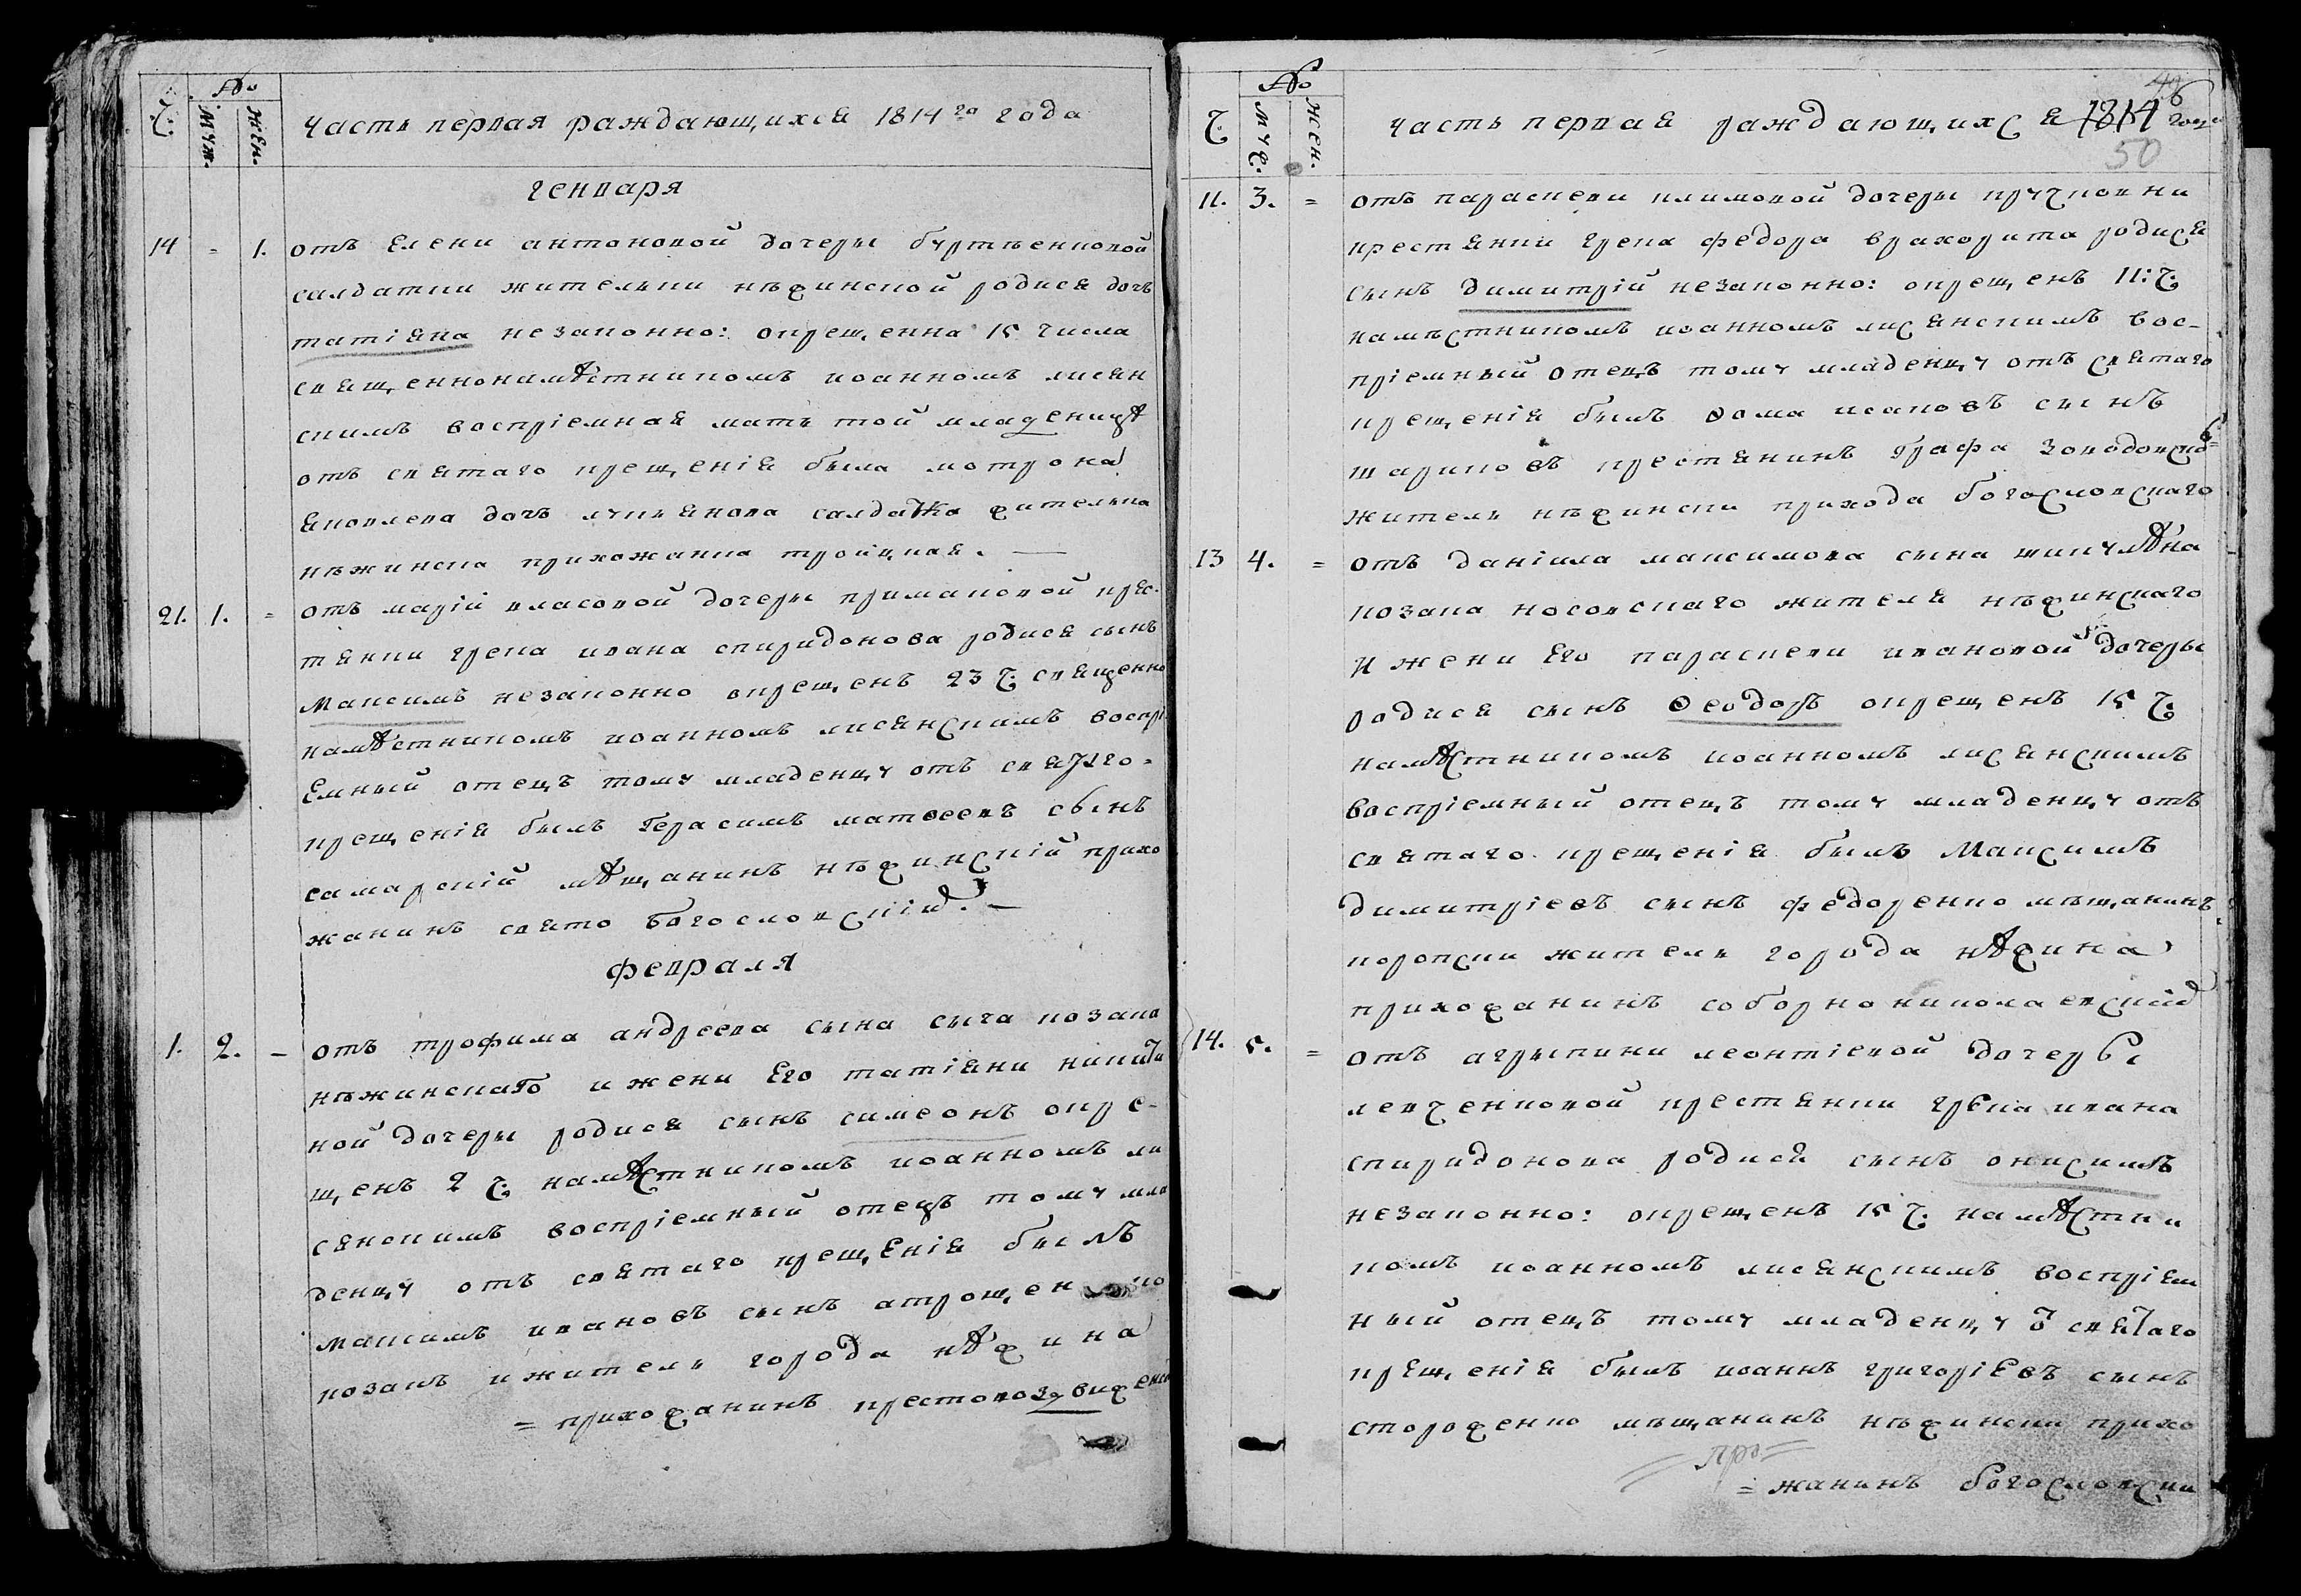 Ч. № муж. жен.
часть первая раждающихся 1814го года
генваря
14 = 1. отъ Елени антоновой дочеры буртвенковой
салдатки жителки нѣжинской родися дочь
татіяна незаконно: окрещенна 15 числа
священнонамѣстникомъ иоанномъ лисян
скимъ воспріемная мать той младеницѣ
отъ святаго крещенія была мотрона
яковлева дочь лукянова салдатка жителька
нѣжинска прихожанка тройцкая. —
21. 1. = отъ марій власовой дочеры примаковой крес
тянки грека ивана спиридонова родися сынъ
Максимъ незаконно окрещенъ 23 ч. священно
намѣстникомъ иоанномъ лисянскимъ воспрі
Емный отецъ тому младенцу отъ святаго =
крещенія былъ Герасимъ матвеевъ сынъ
самарскій мѣщанинъ нѣжинскій прихо
жанинъ свято богословскій. —
февраля
1. 2. – отъ трофима андреева сына сыча козака
нѣжинскаго и жени Его татіяни никити
ной дочеры родися сынъ симеонъ окре-
щенъ 2 ч. намѣстникомъ иоанномъ ли
сянскимъ воспріемный отецъ тому мла
денцу отъ святаго крещЕнія былъ
максимъ ивановъ сынъ атрощенко
козакъ и житель города нѣжина
= прихожанинъ крестовоздвижен
Ч. № муж. жен.
часть первая раждающихся 1814 года
46
50
11. 3. = отъ параскеви климовой дочеры кручковни
крестянки грека федора врахорита родися
сынъ димитрій незаконно: окрещенъ 11: ч.
намѣстникомъ иоанномъ лисянскимъ вос-
пріемный отецъ тому младенцу отъ святаго
крещенія былъ ѳома исаковъ сынъ
шариповъ крестянинъ Графа Заводовско
житель нѣжински прихода богословскаго
13 4. = отъ даніила максимова сына шикулѣна
козака носовскаго жителя нѣжинскаго
и жени Его параскеви ивановой дочеры
родися сынъ Ѳеодоръ окрещенъ 15 ч.
намѣстникомъ иоанномъ лисянскимъ
воспріемный отецъ тому младенцу отъ
святаго крещенія былъ Максимъ
димитріевъ сынъ федоренко мѣщанинъ
коропски житель города нѣжина
прихожанинъ соборно николаевский
14. 5. = отъ агрыпини леонтіевой дочеры
левченковой крестянки грека ивана
спиридонова родися сынъ онисимъ
незаконно: окрещенъ 15 ч. намѣстни
комъ иоанномъ лисянскимъ воспріем
ный отецъ тому младенцу ѿ святаго
крещенія былъ иоаннъ григоріЕвъ сынъ
стороженко мѣщанинъ нѣжински прихо
= жанинъ богословски